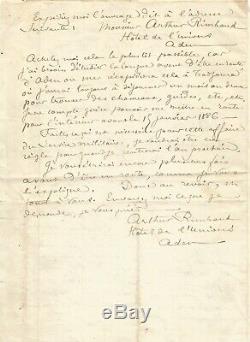 Expédiez moi l'ouvrage dit à l'adresse
suivante : Monsieur Arthur Rimbaud
Hôtel de l'Univers
Aden
Achetez moi cela le plus tôt possible, car
j'ai besoin d'étudier la langue avant d'être en route.
D'Aden on me réexpédiera cela à Tadjoura
où j'aurai toujours à séjourner un mois ou
pour trouver des chameaux, guides, etc, etc,
je ne compte guère pouvoir me mettre en route
pour l'intérieur avant le 15 janvier 1886.
Faites ce qui est nécessaire pour cette affaire
du service militaire, je voudrais être en
règle pour quand je rentrerai l'an prochain.
Je vous écrirai encore plusieurs fois
avant d'être en route, comme je vous
l'explique. Donc au revoir, et
tout à vous. Envoyez moi ce que je
demande, je vous prie.
Arthur Rimbaud
Hôtel de l'Univers
Aden